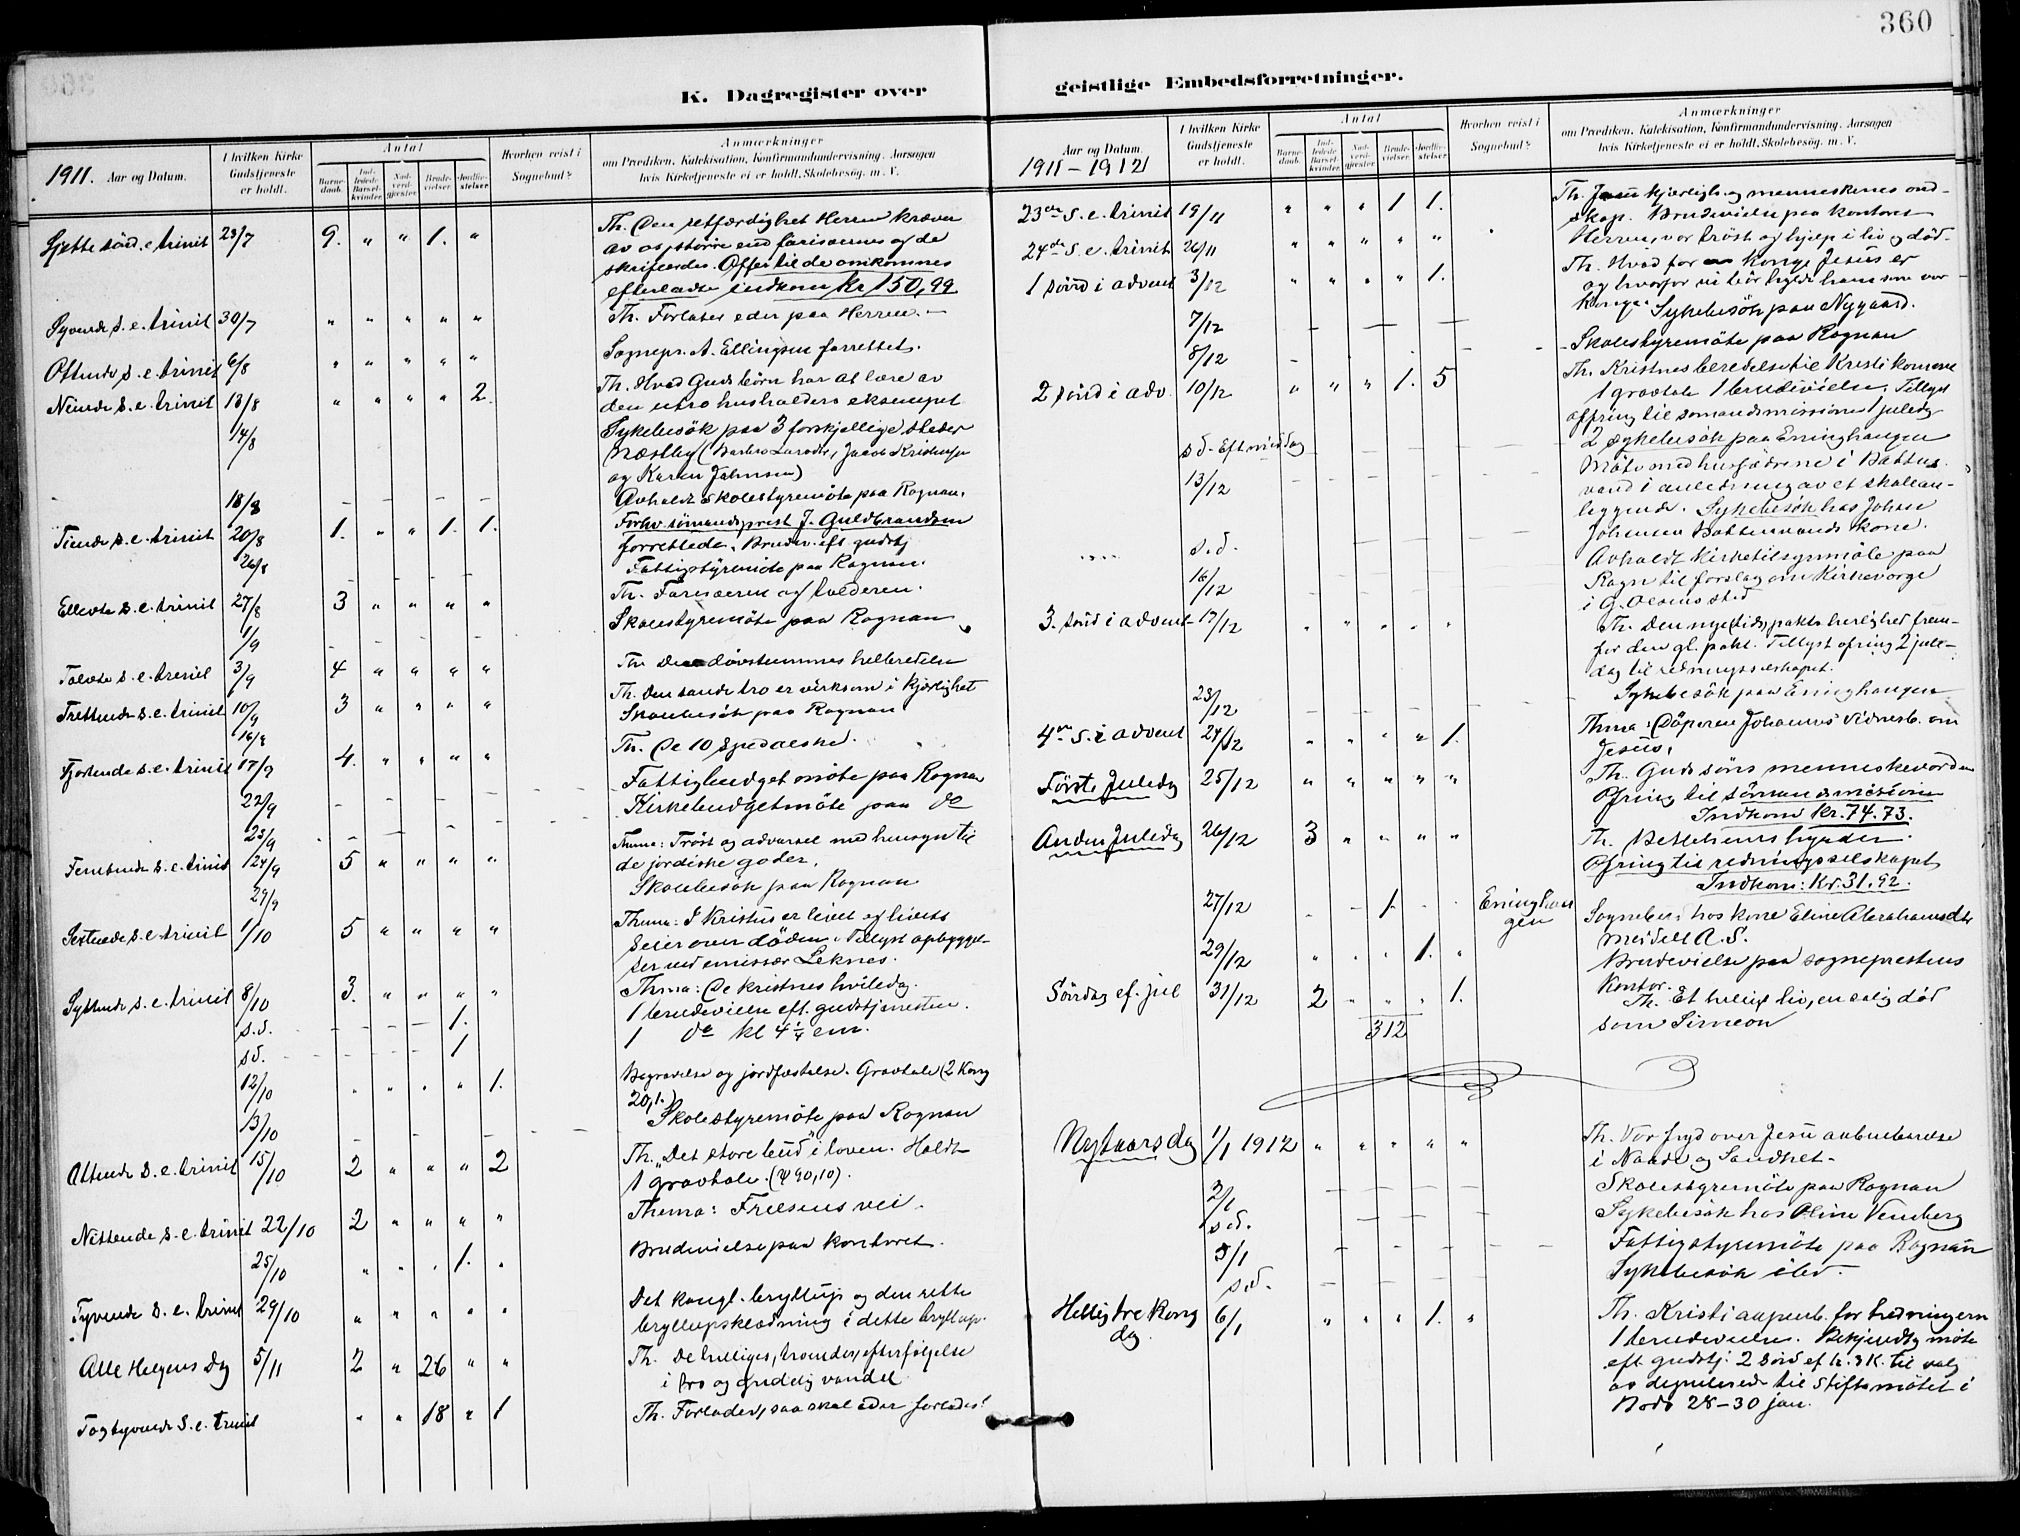 360
K. Dagregister over
geistlige Embedsforretninger.
1911. Aar og Datum.
I hvilken Kirke Gudstjeneste er holdt.
Antal
Barne-daab.
Ind-ledede Barsel-kvinder.
Nad-verd-gjester.
Brude-vielser
Jordfæ-stelser
Hvorhen reist i Sognebud?
Anmærkninger
om Prædiken, Katekisation, Konfirmandundervisning, Aarsagen
hvis Kirketjeneste ei er holdt, Skolebesøg. m. V.
Sjette sönd. e. trinit 23/7 9. " " 1. " Th. Den retfærdighet Herren kræver
av os, större end fariseernes og de
skriftlærdes. Offer til de omkomnes
efterladte indkom Kr 150,99
Syvende s. e. trinit 30/7 " " " " " Th. Forlater eder paa Herren. –
Ottende s. e. trinit 6/8 " " " " " Sognepr. A. Ellingsen forrettet.
Niende s. e. trinit 13/8 " " " " 2. Th. Hvad Guds börn har at lære av
den utro husholders eksempel
14/8 Sykebesök paa 3 forskjellige steder
Næstby (Barbro Larsdtr, Jacob Kristensen
og Karen Johnsen)
18/8 – – – – – Avholdt skolestyremöte paa Rognan.
Tiende s. e. trinit 20/8 1. " " 1. 1. Forhv sömandsprest J. Guldbrandsen
forrettede. Brudev. eft. gudstj
26/8 – – – – – Fattigstyremöte paa Rognan.
Ellevte s. e. trinit 27/8 3 " " " " Th. Fariseeren og tolderen.
1/9 Skolestyremöte paa Rognan
Tolvte s. e. trinit 3/9 4 " " " " Th Den dövstummes helbredelse
Trettende s. e. trinit 10/9 3 " " " " Th. Den sande tro er virksom i kjærlighet
16/9 Skolebesök paa Rognan
Fjortende s. e. trinit 17/9 4. " " " " Th. De 10 spedalske.
22/9 – – – – – Fattigbudgetmöte paa Rognan
23/9 – – – – – Kirkebudgetmöte paa do
Femtende s. e. trinit 24/9 5 " " " " Thema: Tröst og advarsel med hensyn til
de jordiske goder.
29/9 Skolebesök paa Rognan
Sextende s. e. trinit 1/10 5 " " " " Thema: I Kristus er livet og livets
seier over döden. Tillyst opbyggel-
ser ved emissær Leknes.
Syttende s. e. trinit 8/10 3. " " " " Thma: De kristnes hviledag.
s. d. – – – 1. 1 brudevielse eft. gudstjenesten.
s d. – – – 1 1 do kl 4 1/4 em.
12/10 " " " " 1. Begravelse og jordfæstelse. Gravtale (2 Kong
20,1.)
13/10 – – – – – Skolestyremöte paa Rognan
Attende s. e. trinit 15/10 2 " " " 2 Th. "Det store bud" i loven. Holdt
1 gravtale. (Ψ 90,10).
Nittende s. e. trinit 22/10 2 " " " " Thema: Frelsens vei.
25/10 " " " 1. " Brudevielse paa kontoret.
Tyvende s. e. trinit 29/10 " " " " " Det kongl. bryllup og den rette
bryllupsklædning i dette bryllup.
Alle Helgens Dg 5/11 2 " 26 " " Th. De helliges, troendes, efterfölgelse
i tro og gudelig vandel
Togtyvende s. e. trinit " " 18 " 1 Th. Forlader, saa skal eder forlades!
Aar og Datum.
1911 – 1912
I hvilken Kirke Gudstjeneste er holdt.
Antal
Barne-daab.
Ind-ledede Barsel-kvinder.
Nad-verd-gjester
Brude-vielser
Jordfæ-stelser
Hvorhen reist i Sognebud?
Anmærkninger
om Prædiken, Katekisation, Konfirmandundervisning, Aarsagen
hvis Kirketjeneste ei er holdt, Skolebesøg. m. V.
23de s. e. trinit 19/11 " " " 1 1. Th. Jesu kjærligh. og menneskenes ond-
skap. Brudevielse paa kontoret
24de s. e. trinit 26/11 " " " " " Herren, vor tröst og hjelp i liv og död.
1 sönd i advent 3/12 " " " " 1. Th. Hvad for en konge Jesus er
og hvorfor vi bör hylde ham som vor
konge.
7/12 – – – Sykebesök paa Nygaard.
8/12 – Skolestyremöte paa Rognan
2 sönd i adv. 10/12 " " " 1. 5 Th. Kristnes beredelse til Kristi komme
1 gravtale 1 brudevielse. Tillyst
ofring til sömandsmissionen 1 juledg
s d. Eftmiddag – – – – – 2 sykebesök paa Eninghaugen
13/12 – – – – – Möte med husfædrene i Botten-
vand i anledning av et skolean-
liggende. Sykebesök hos Johan
Johnsen Bottenvands kone.
.... s. d. – – – – Avholdt kirketilsynsmöte paa
16/12 – – – – Rogn til forslag om kirkeværge
i G. Olsens sted
3. sönd i advent 17/12 " " " " " Th. Den nye (tids) pakts herlighed frem-
for den gl. pakt. Tillyst ofring 2 jule-
dag til redningsselskapet.
23/12 – – – – – Sykebesök paa Eninghaugen
4de s. i advent 24/12 " " " " 1. Thma: Döperen Johannes vidnesb. om
Jesus.
Förste Juledg 25/12 " " " " " Th. Guds söns menneskevorden
Ofring til sömandsmission
Indkom kr. 74.73.
Anden Juledg 26/12 3 " " " " Th. Betlehems hyrder.
Ofring til redningsselskapet
Indkom: Kr. 31,92.
27/12 – – 1 – – Eninghau
gen Sogneber. hos kone Eline Abrahamsdtr
29/12 " " " 1. " Brudevielse paa sogneprestens
kontor.
Söndag ef. jul 31/12 2 " " " 1. Th. Et hellig liv, en salig död
312 som Simeon
Nytaarsdg 1/1 1912 " " " " " Th. Vor fryd over Jesu aabenbarelse
i Naade og Sandhet –
2/1 – – – – Skolestyremöte paa Rognan
s. d. – – – Sykebesök hos Oline Venberg
5/1 – – – – – Fattigstyremöte paa Rognan
s. d. – – – – Sykebesök ibd. –
Hellig tre Kong
dg. 6/1 " " " 1. " Th. Kristi aapenb. for hedningern
1 brudevielse. Bekjendtg möte
eft. gudstj. 2 sönd ef h. 3 K. til valg
av deputerede til Stiftsmötet i
Bodö 28–30 jan.